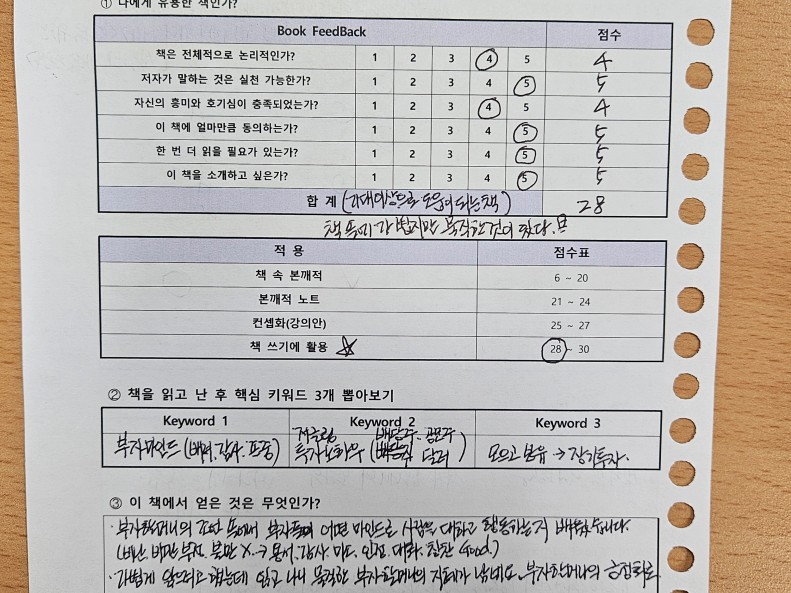 ① 나에게 유용한 책인가?
Book FeedBack 점수
책은 전체적으로 논리적인가? 1 2 3 4 5 4
저자가 말하는 것은 실천 가능한가? 1 2 3 4 5 5
자신의 흥미와 호기심이 충족되었는가? 1 2 3 4 5 4
이 책에 얼마만큼 동의하는가? 1 2 3 4 5 5
한 번 더 읽을 필요가 있는가? 1 2 3 4 5 5
이 책을 소개하고 싶은가? 1 2 3 4 5 5
합 계 (기대이상으로 도움이 되는 책) 28
책 두께가 가볍지만 묵직한 것이 있다.
적 용 점수표
책 속 본깨적 6 ~ 20
본깨적 노트 21 ~ 24
컨셉화(강의안) 25 ~ 27
책 쓰기에 활용 ☆ 28 ~ 30
② 책을 읽고 난 후 핵심 키워드 3개 뽑아보기
Keyword 1 Keyword 2 Keyword 3
부자마인드 (배려, 감사
저글링 배당주, 공모주
투자노하우 달러)
모으고 본유 → 장기투자.
③ 이 책에서 얻은 것은 무엇인가?
· 부자할머니의 조언 속에서 부자들이 어떤 마인드로 사람을 대하고 행동하는지 배웠습니다.
(비난, 비판, 부정, 불만 X → 용서, 감사, 미소, 인정, 대화, 칭찬 Good.)
· 가볍게 읽으려고 했는데 읽고 나니 묵직한 부자할머니의 지혜가 남네요. 부자할머니의